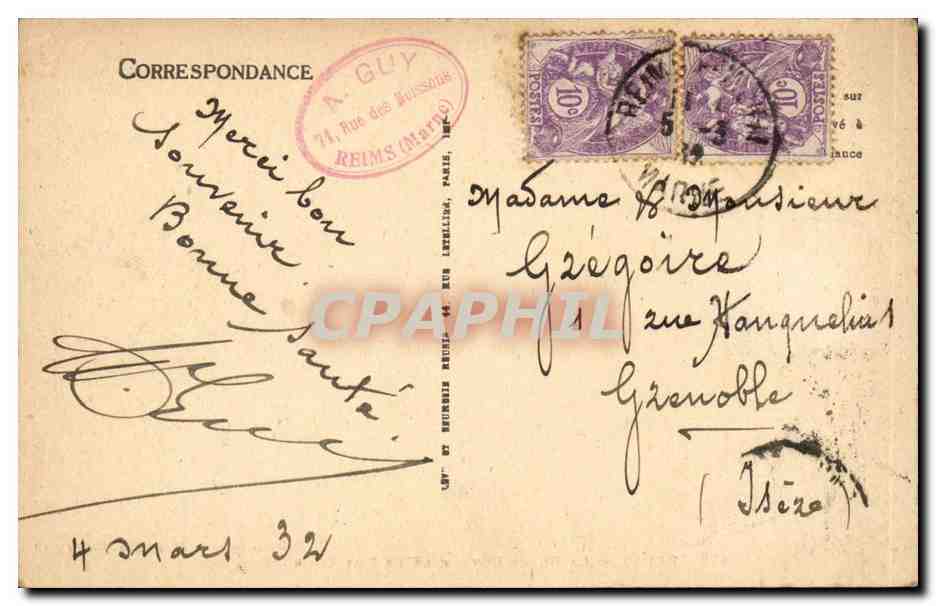 CORRESPONDANCE
A. GUY
71, Rue des Buissons
REIMS (Marne)
Merci bon
Souvenir
Bonne Santé
4 mars 32
LEVY ET NEURDEIN REUNIS, 44, RUE LETELLIER, PARIS, IMP.
POSTES 10c
10c POSTES
REIMS
5 -3
MARNE
sur
Madame & Monsieur
Grégoire
1 rue
Grenoble
(Isère)
CPAPHIL